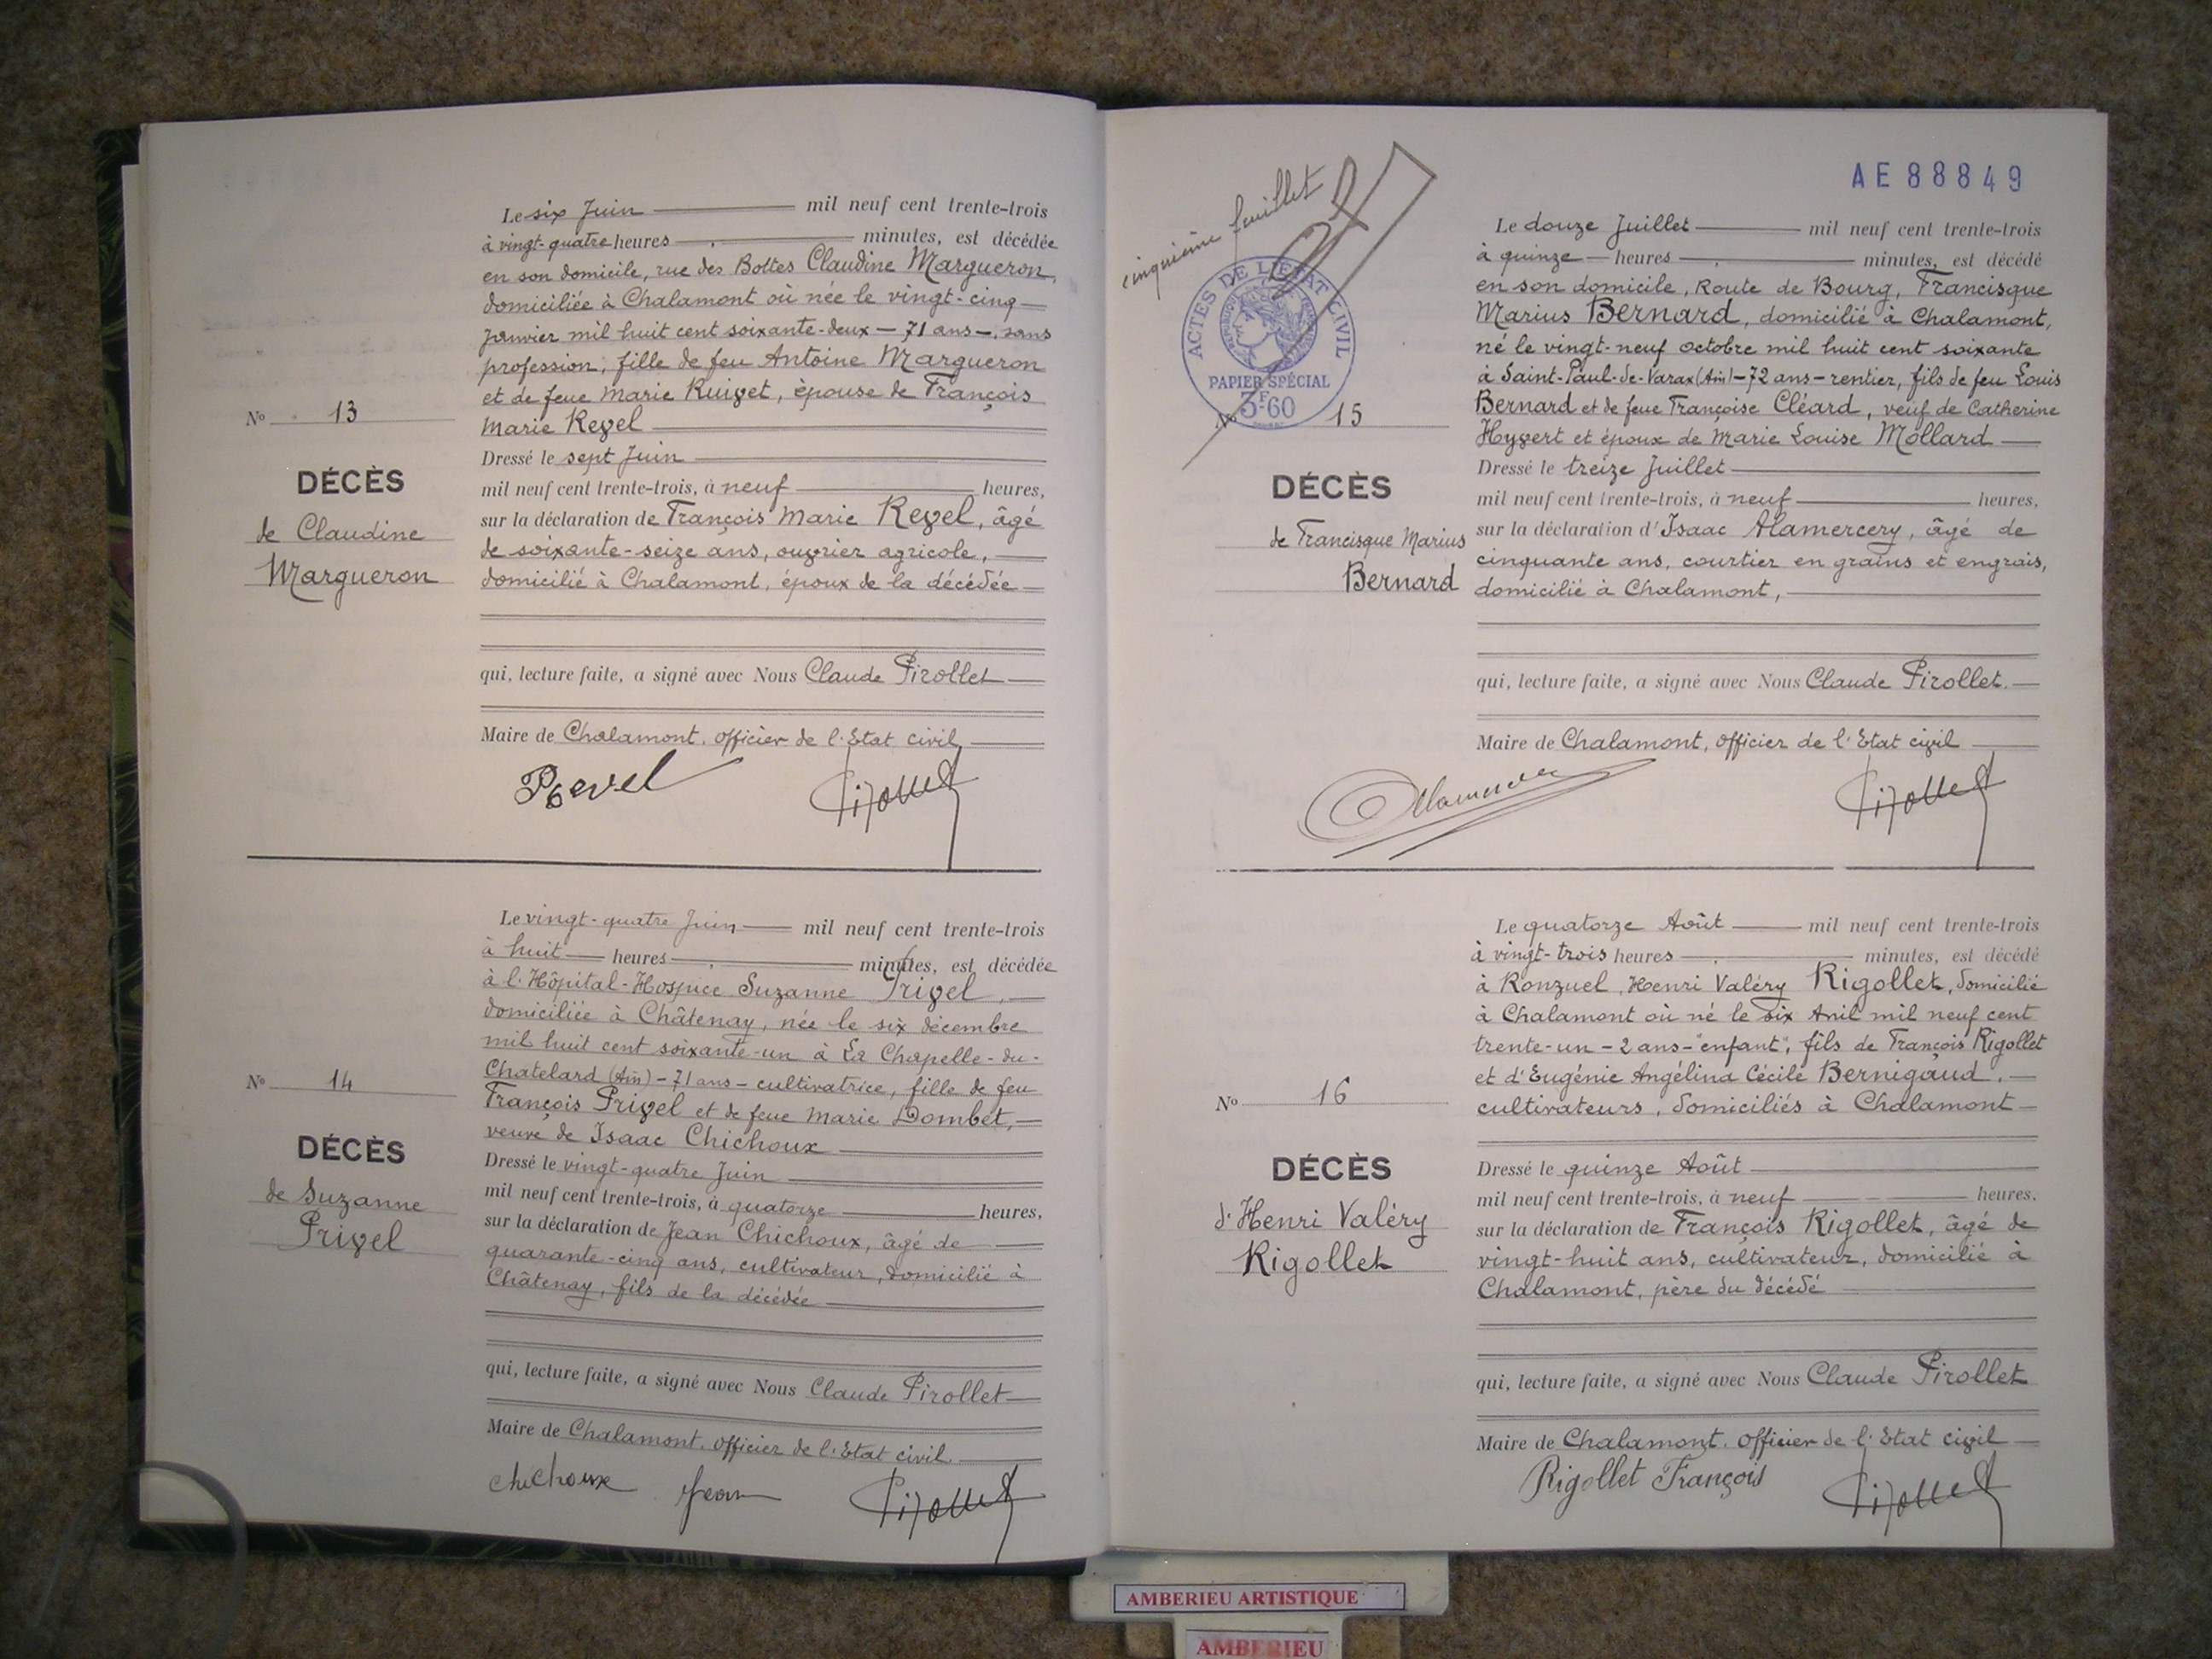 Le six Juin mil neuf cent trente-trois
à vingt-quatre heures minutes, est décédée
en son domicile, rue des Bottes Claudine Margueron,
domiciliée à Chalamont où née le vingt-cinq
janvier mil huit cent soixante-deux - 71 ans -, sans
profession, fille de feu Antoine Margueron
et de feue Marie Ruivet, épouse de François
Marie Revel
Nº 13
DÉCÈS
de Claudine
Margueron
Dressé le sept Juin
mil neuf cent trente-trois, à neuf heures,
sur la déclaration de François Marie Revel, âgé
de soixante-seize ans, ouvrier agricole,
domicilié à Chalamont, époux de la décédée
qui, lecture faite, a signé avec Nous Claude Pirollet
Maire de Chalamont, officier de l'Etat civil
Revel Pirollet
Le vingt-quatre Juin mil neuf cent trente-trois
à huit heures minutes, est décédée
à l'Hôpital-Hospice Suzanne Privel,
domiciliée à Châtenay, née le six décembre
mil huit cent soixante-un à La Chapelle-du-
Chatelard (Ain) - 71 ans - cultivatrice, fille de feu
François Privel et de feue Marie Dombet,
veuve de Isaac Chichoux
Nº 14
DÉCÈS
de Suzanne
Privel
Dressé le vingt-quatre Juin
mil neuf cent trente-trois, à quatorze heures,
sur la déclaration de Jean Chichoux, âgé de
quarante-cinq ans, cultivateur, domicilié à
Châtenay, fils de la décédée
qui, lecture faite, a signé avec Nous Claude Pirollet
Maire de Chalamont, officier de l'Etat civil.
chichoux Jean Pirollet
cinquième feuillet
AE 88849
ACTES DE L'ETAT CIVIL
PAPIER SPÉCIAL
3F60
Nº 15
DÉCÈS
de Francisque Marius
Bernard
Le douze Juillet mil neuf cent trente-trois
à quinze heures minutes, est décédé
en son domicile, Route de Bourg, Francisque
Marius Bernard, domicilié à Chalamont,
né le vingt-neuf octobre mil huit cent soixante
à Saint-Paul-de-Varax (Ain) - 72 ans - rentier, fils de feu Louis
Bernard et de feue Françoise Cléard, veuf de Catherine
Hyvert et époux de Marie Louise Mollard
Dressé le treize Juillet
mil neuf cent trente-trois, à neuf heures,
sur la déclaration d'Isaac Alamercery, âgé de
cinquante ans, courtier en grains et engrais,
domicilié à Chalamont,
qui, lecture faite, a signé avec Nous Claude Pirollet.
Maire de Chalamont, officier de l'Etat civil
Pirollet
Le quatorze Août mil neuf cent trente-trois
à vingt-trois heures minutes, est décédé
à Ronzuel, Henri Valéry Rigollet, domicilié
à Chalamont où né le six Avril mil neuf cent
trente-un - 2 ans - "enfant", fils de François Rigollet
et d'Eugénie Angélina Cécile Bernigaud,
cultivateurs, domiciliés à Chalamont
Nº 16
DÉCÈS
d'Henri Valéry
Rigollet
Dressé le quinze Août
mil neuf cent trente-trois, à neuf heures,
sur la déclaration de François Rigollet, âgé de
vingt-huit ans, cultivateur, domicilié à
Chalamont, père du décédé
qui, lecture faite, a signé avec Nous Claude Pirollet
Maire de Chalamont, officier de l'Etat civil
Rigollet François Pirollet
AMBERIEU ARTISTIQUE
AMBERIEU